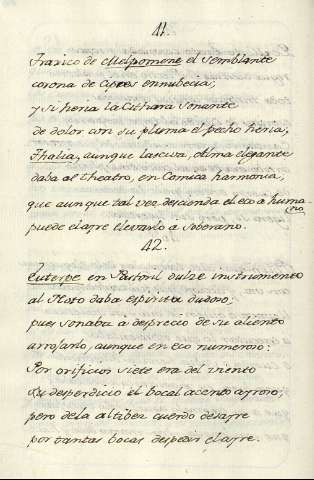 41.
Trajico de Melpomene el semblante
corona de Cipres ennubecia;
y si heria la Cithara sonante
de dolor con su pluma el pecho heria,
Thalia, aunque lasciva, Olima elegante
daba al theatro, en Comica harmonia,
que aunque tal vez descienda el eco à humano,
puede el ayre elevarlo à Soberano.
42.
Euterpe en Pastoril dulze instrumento
al Noto daba espiritu dudoso;
pues sonaba à desprecio de su aliento
arrojarlo, aunque en eco numeroso:
Por orificios siete era del viento
desperdicio el bocal acento ayroso;
pero de la altibez cuerdo desayre
por tantas bocas despedir el ayre.